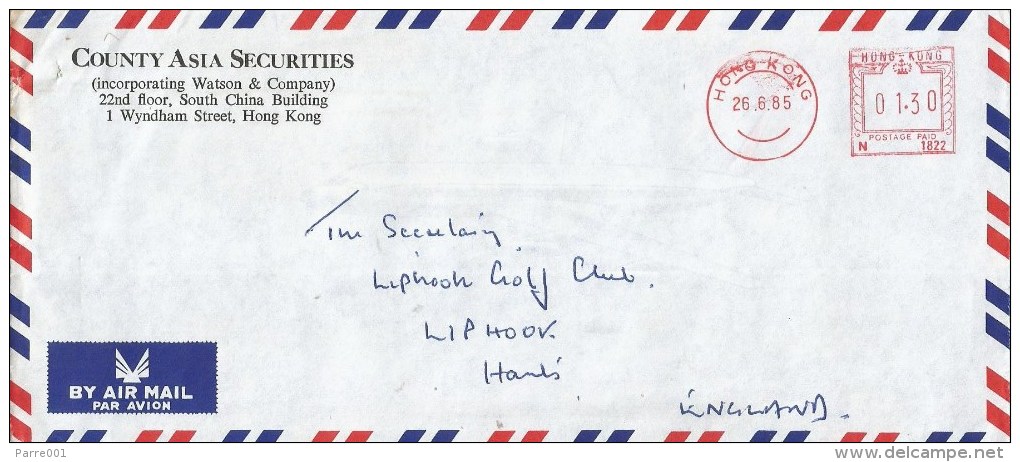 COUNTY ASIA SECURITIES
(incorporating Watson & Company)
22nd floor, South China Building
1 Wyndham Street, Hong Kong
HONG KONG
26.6.85
HONG-KONG
01.30
POSTAGE PAID
N 1822
The Secretary,
Liphook Golf Club.
LIPHOOK
Hants
ENGLAND.
BY AIR MAIL
PAR AVION
Parre001
delcampe.net